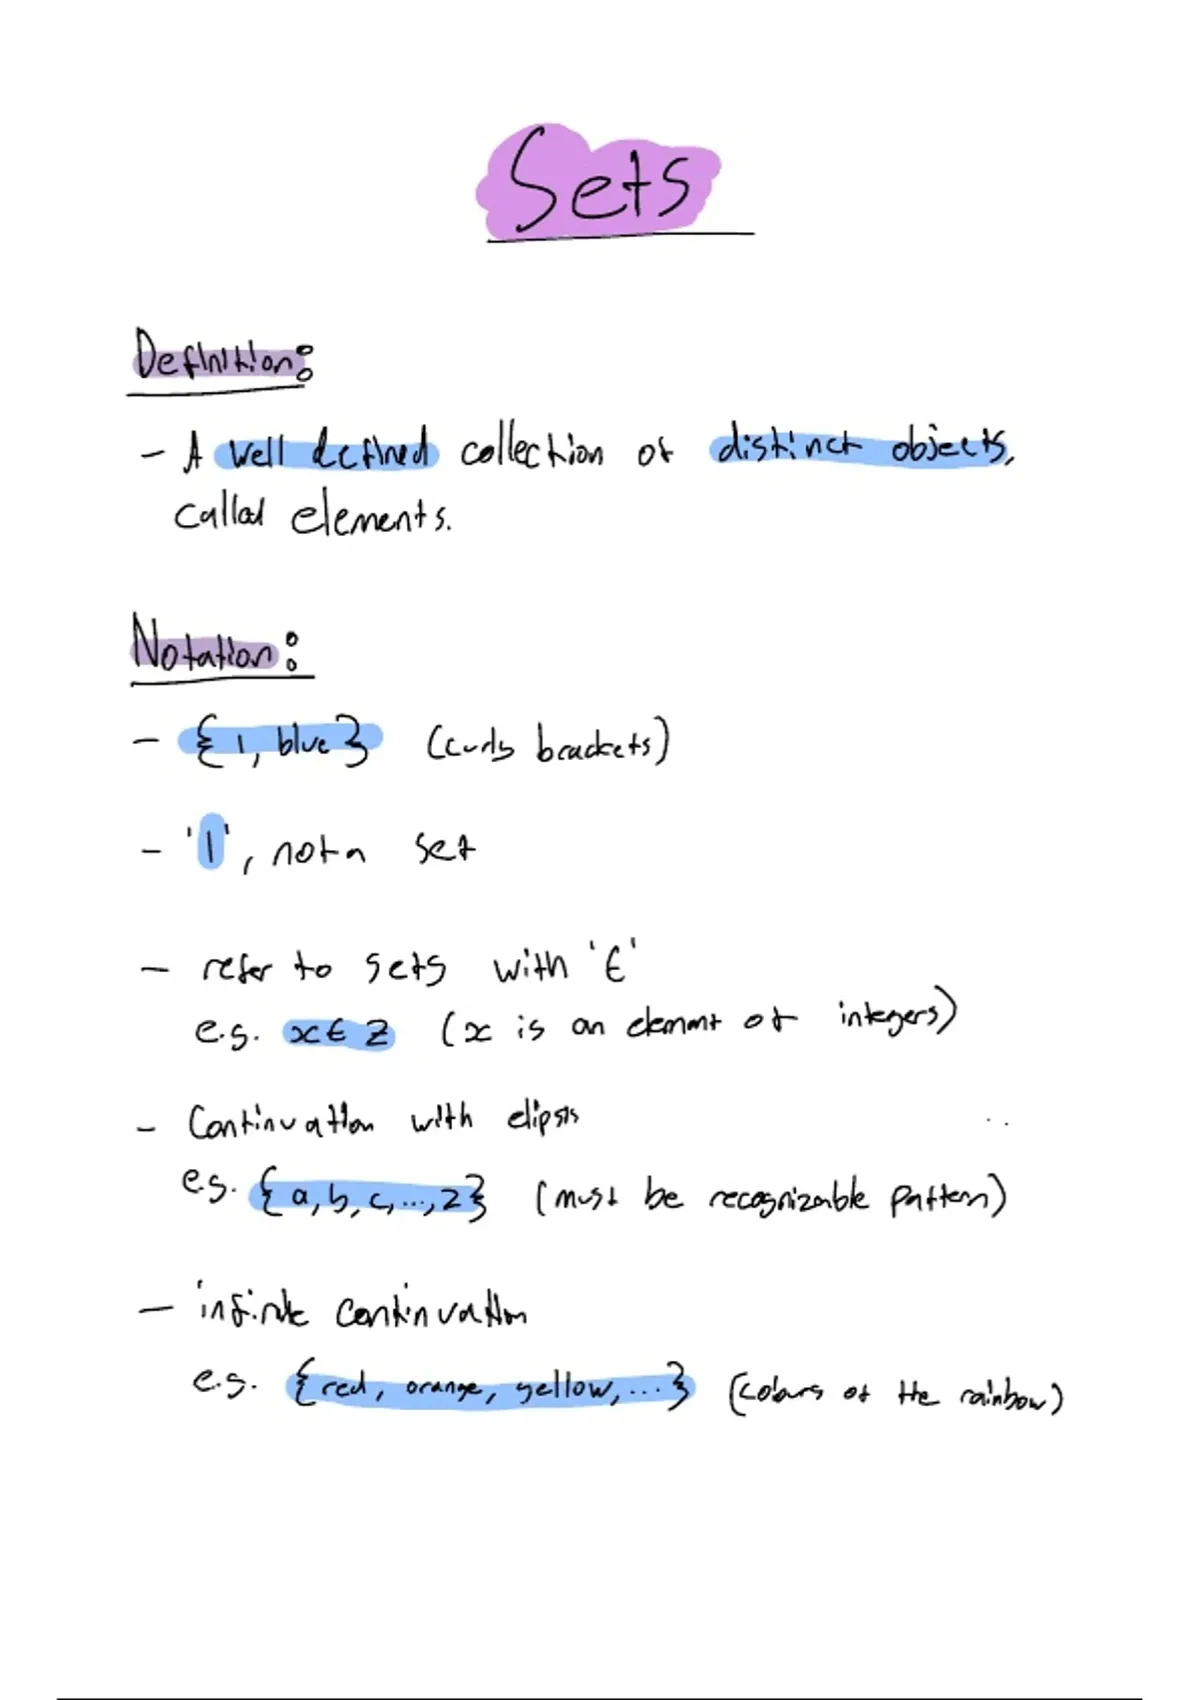 Sets
Definition:
- A well defined collection of distinct objects,
called elements.
Notation:
- {1, blue} (curly brackets)
- '1', not a set
- refer to sets with '∈'
e.g. x ∈ Z (x is an element of integers)
- Continuation with elipsis
e.g. {a, b, c, ..., z} (must be recognizable pattern)
- infinite continuation
e.g. {red, orange, yellow, ...} (colours of the rainbow)